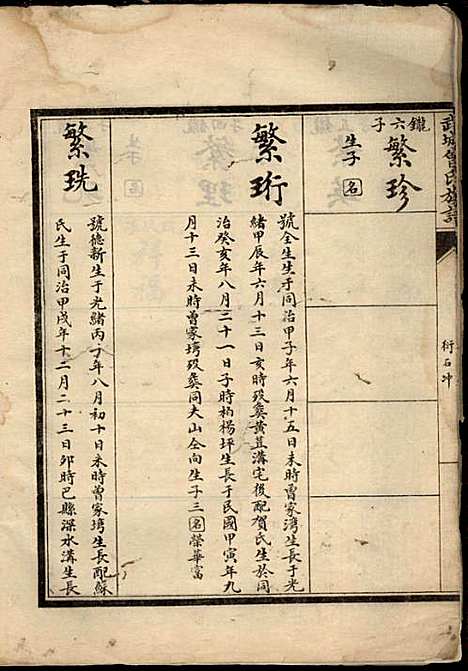 武城曾氏族譜
衍石冲
鑨六子
繁珍
生子
名
繁珩
號全生生于同治甲子年六月十五日未時曾家湾生長于光
緒甲辰年六月十三日亥時歿𦵏黄荁溝宅後配賀氏生於同
治癸亥年八月三十一日子時柏楊坪生長于民國甲寅年九
月十三日未時曾家塆歿𦵏同夫山仝向生子三名榮華富
繁珗
號德新生于光緒丙子年八月初十日未時曾家塆生長配蘇
氏生于同治甲戌年十二月二十三日卯時巴縣深水溝生長